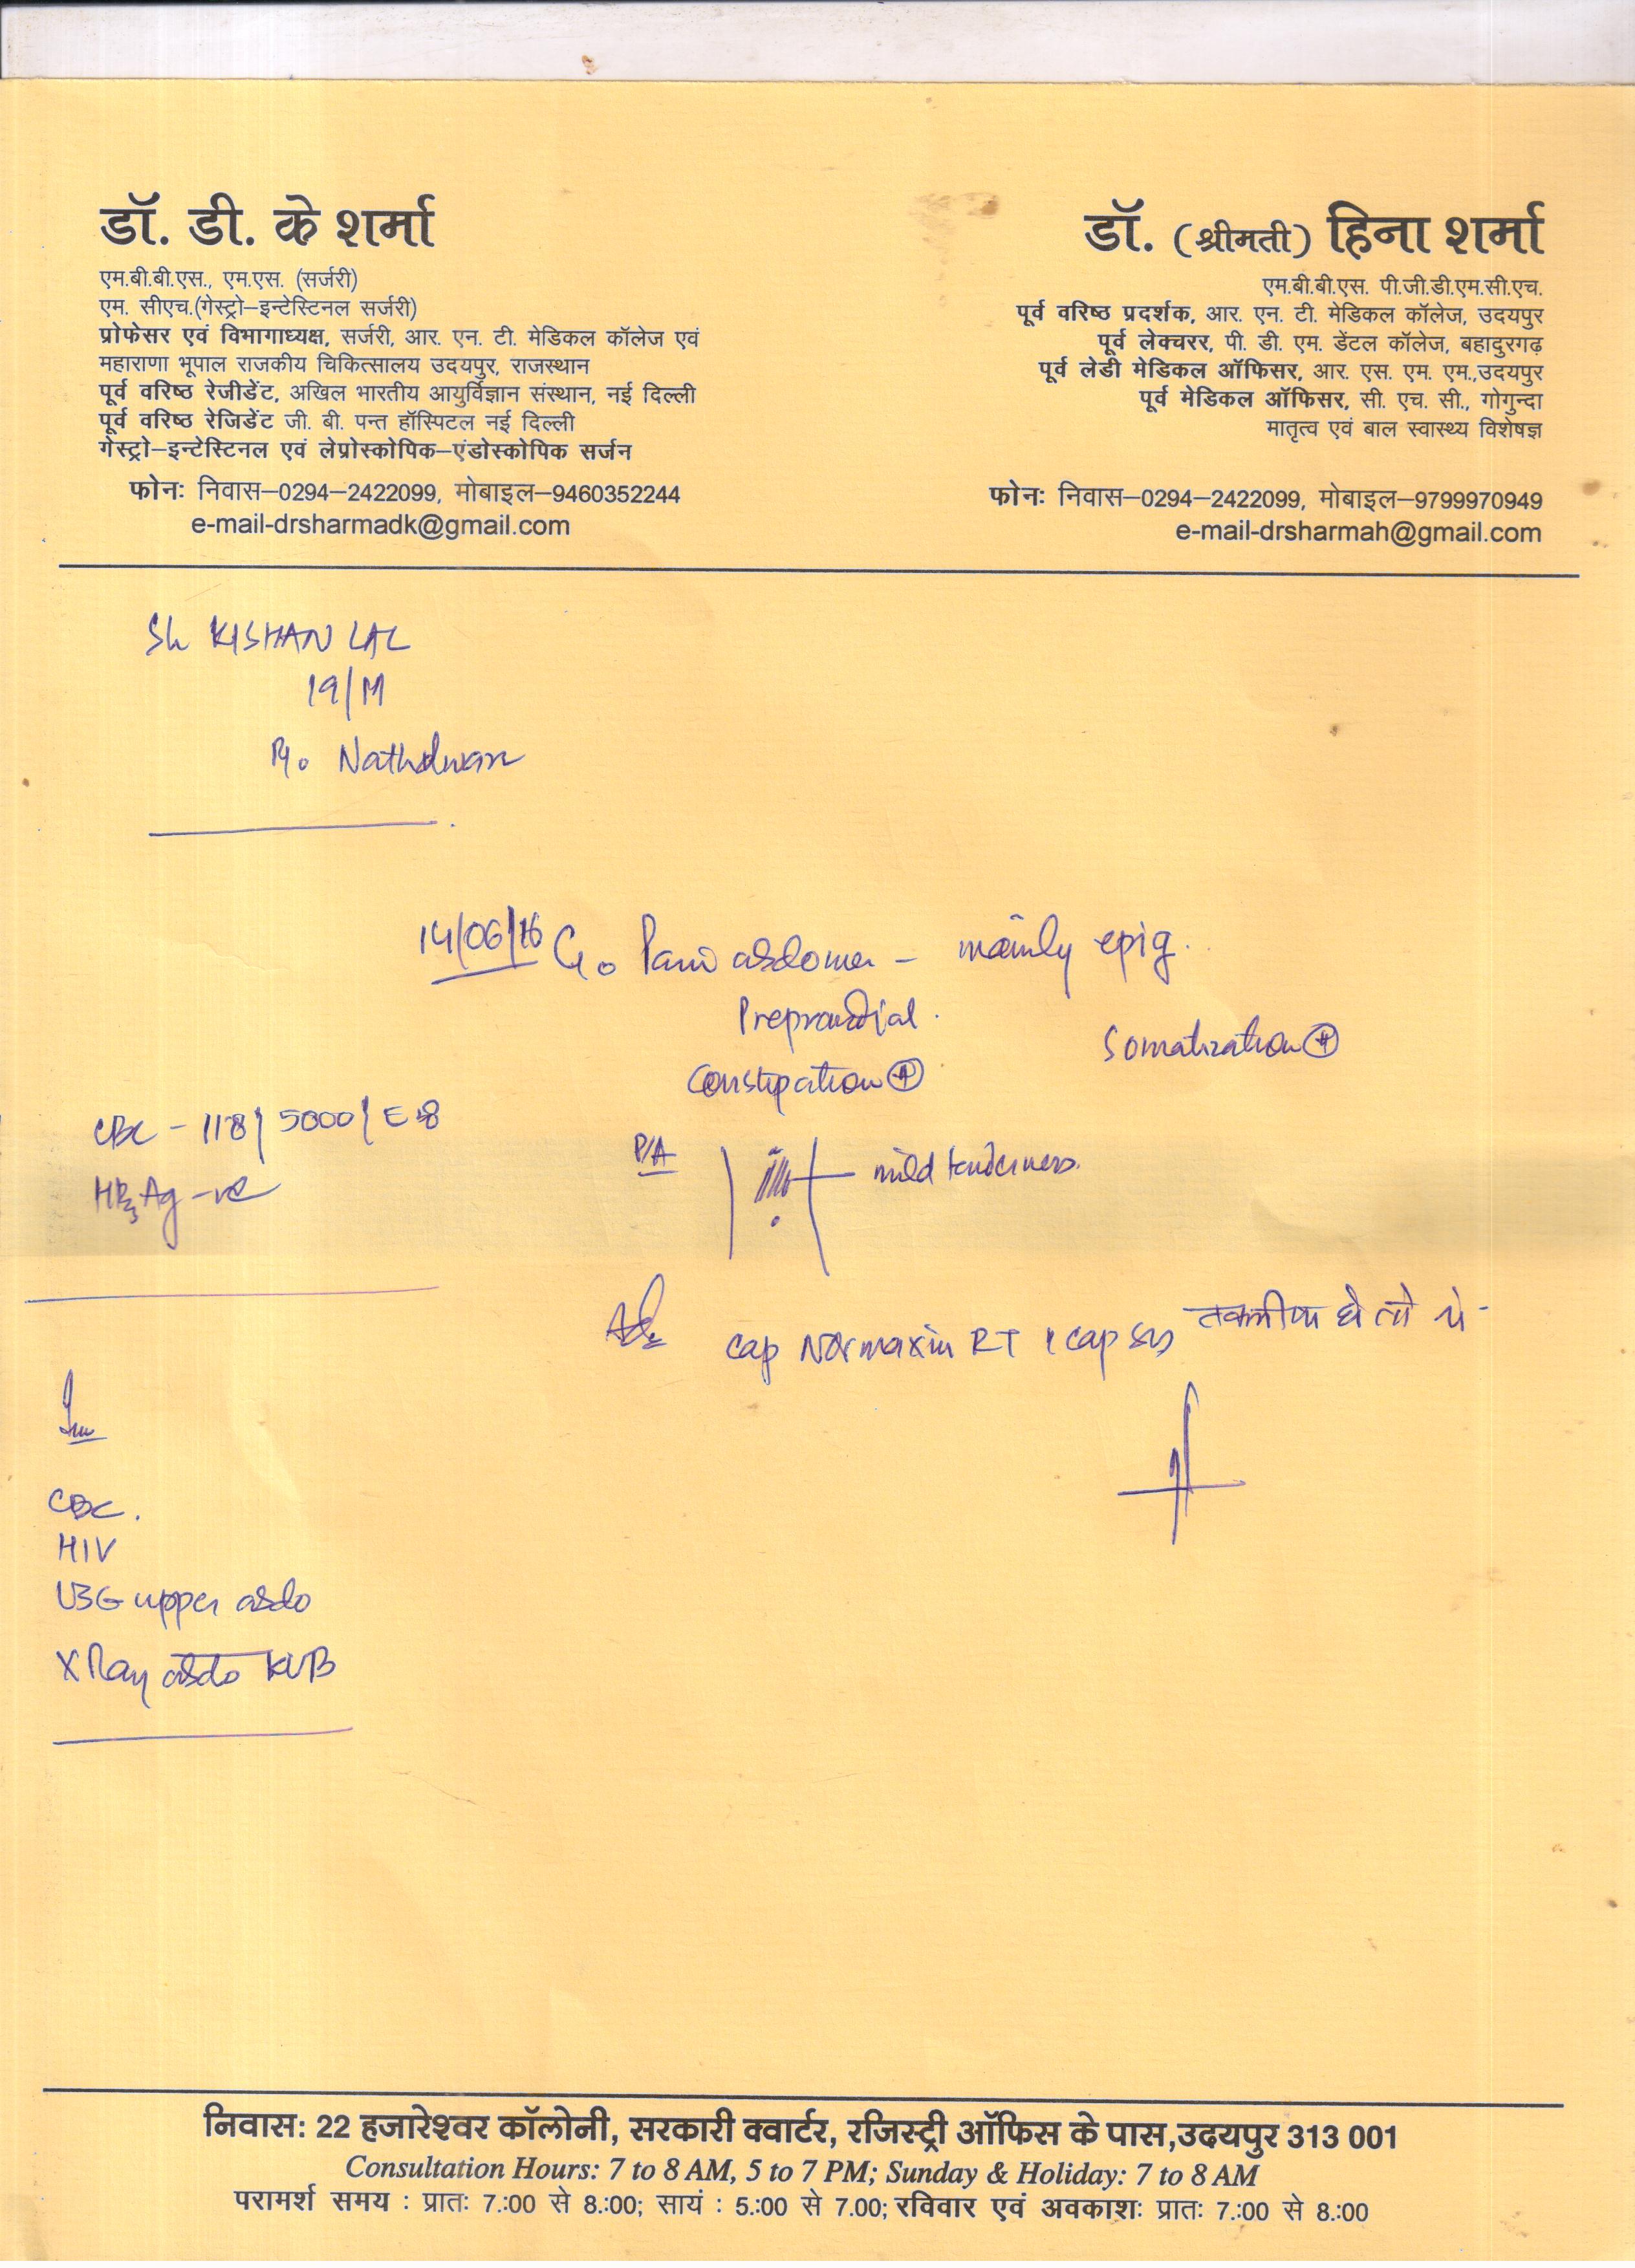 डॉ. डी. के शर्मा
एम.बी.बी.एस., एम.एस. (सर्जरी)
एम. सीएच.(गेस्ट्रो–इन्टेस्टिनल सर्जरी)
प्रोफेसर एवं विभागाध्यक्ष, सर्जरी, आर. एन. टी. मेडिकल कॉलेज एवं
महाराणा भूपाल राजकीय चिकित्सालय उदयपुर, राजस्थान
पूर्व वरिष्ठ रेजीडेंट, अखिल भारतीय आयुर्विज्ञान संस्थान, नई दिल्ली
पूर्व वरिष्ठ रेजिडेंट जी. बी. पन्त हॉस्पिटल नई दिल्ली
गेस्ट्रो–इन्टेस्टिनल एवं लेप्रोस्कोपिक–एंडोस्कोपिक सर्जन
फोन: निवास–0294–2422099, मोबाइल–9460352244
e-mail-drsharmadk@gmail.com
डॉ. (श्रीमती) हिना शर्मा
एम.बी.बी.एस. पी.जी.डी.एम.सी.एच.
पूर्व वरिष्ठ प्रदर्शक, आर. एन. टी. मेडिकल कॉलेज, उदयपुर
पूर्व लेक्चरर, पी. डी. एम. डेंटल कॉलेज, बहादुरगढ़
पूर्व लेडी मेडिकल ऑफिसर, आर. एस. एम. एम.,उदयपुर
पूर्व मेडिकल ऑफिसर, सी. एच. सी., गोगुन्दा
मातृत्व एवं बाल स्वास्थ्य विशेषज्ञ
फोन: निवास–0294–2422099, मोबाइल–9799970949
e-mail-drsharmah@gmail.com
Sh KISHAN LAL
19/M
R/o Nathdwara
14/06/16 C/o Pain abdomen - mainly epig.
Preprandial.
Somatization +
Constipation +
CBC - 118/ 5000/ E8
HBsAg -ve
P/A
mild tenderness.
Adv
cap Normaxin RT 1 cap sos तकलीफ हो तो ले-
Inv
CBC.
HIV
USG upper abdo
X Ray abdo KUB
निवास: 22 हजारेश्वर कॉलोनी, सरकारी क्वार्टर, रजिस्ट्री ऑफिस के पास,उदयपुर 313 001
Consultation Hours: 7 to 8 AM, 5 to 7 PM; Sunday & Holiday: 7 to 8 AM
परामर्श समय : प्रातः 7.:00 से 8.:00; सायं : 5.:00 से 7.00; रविवार एवं अवकाशः प्रातः 7.:00 से 8.:00